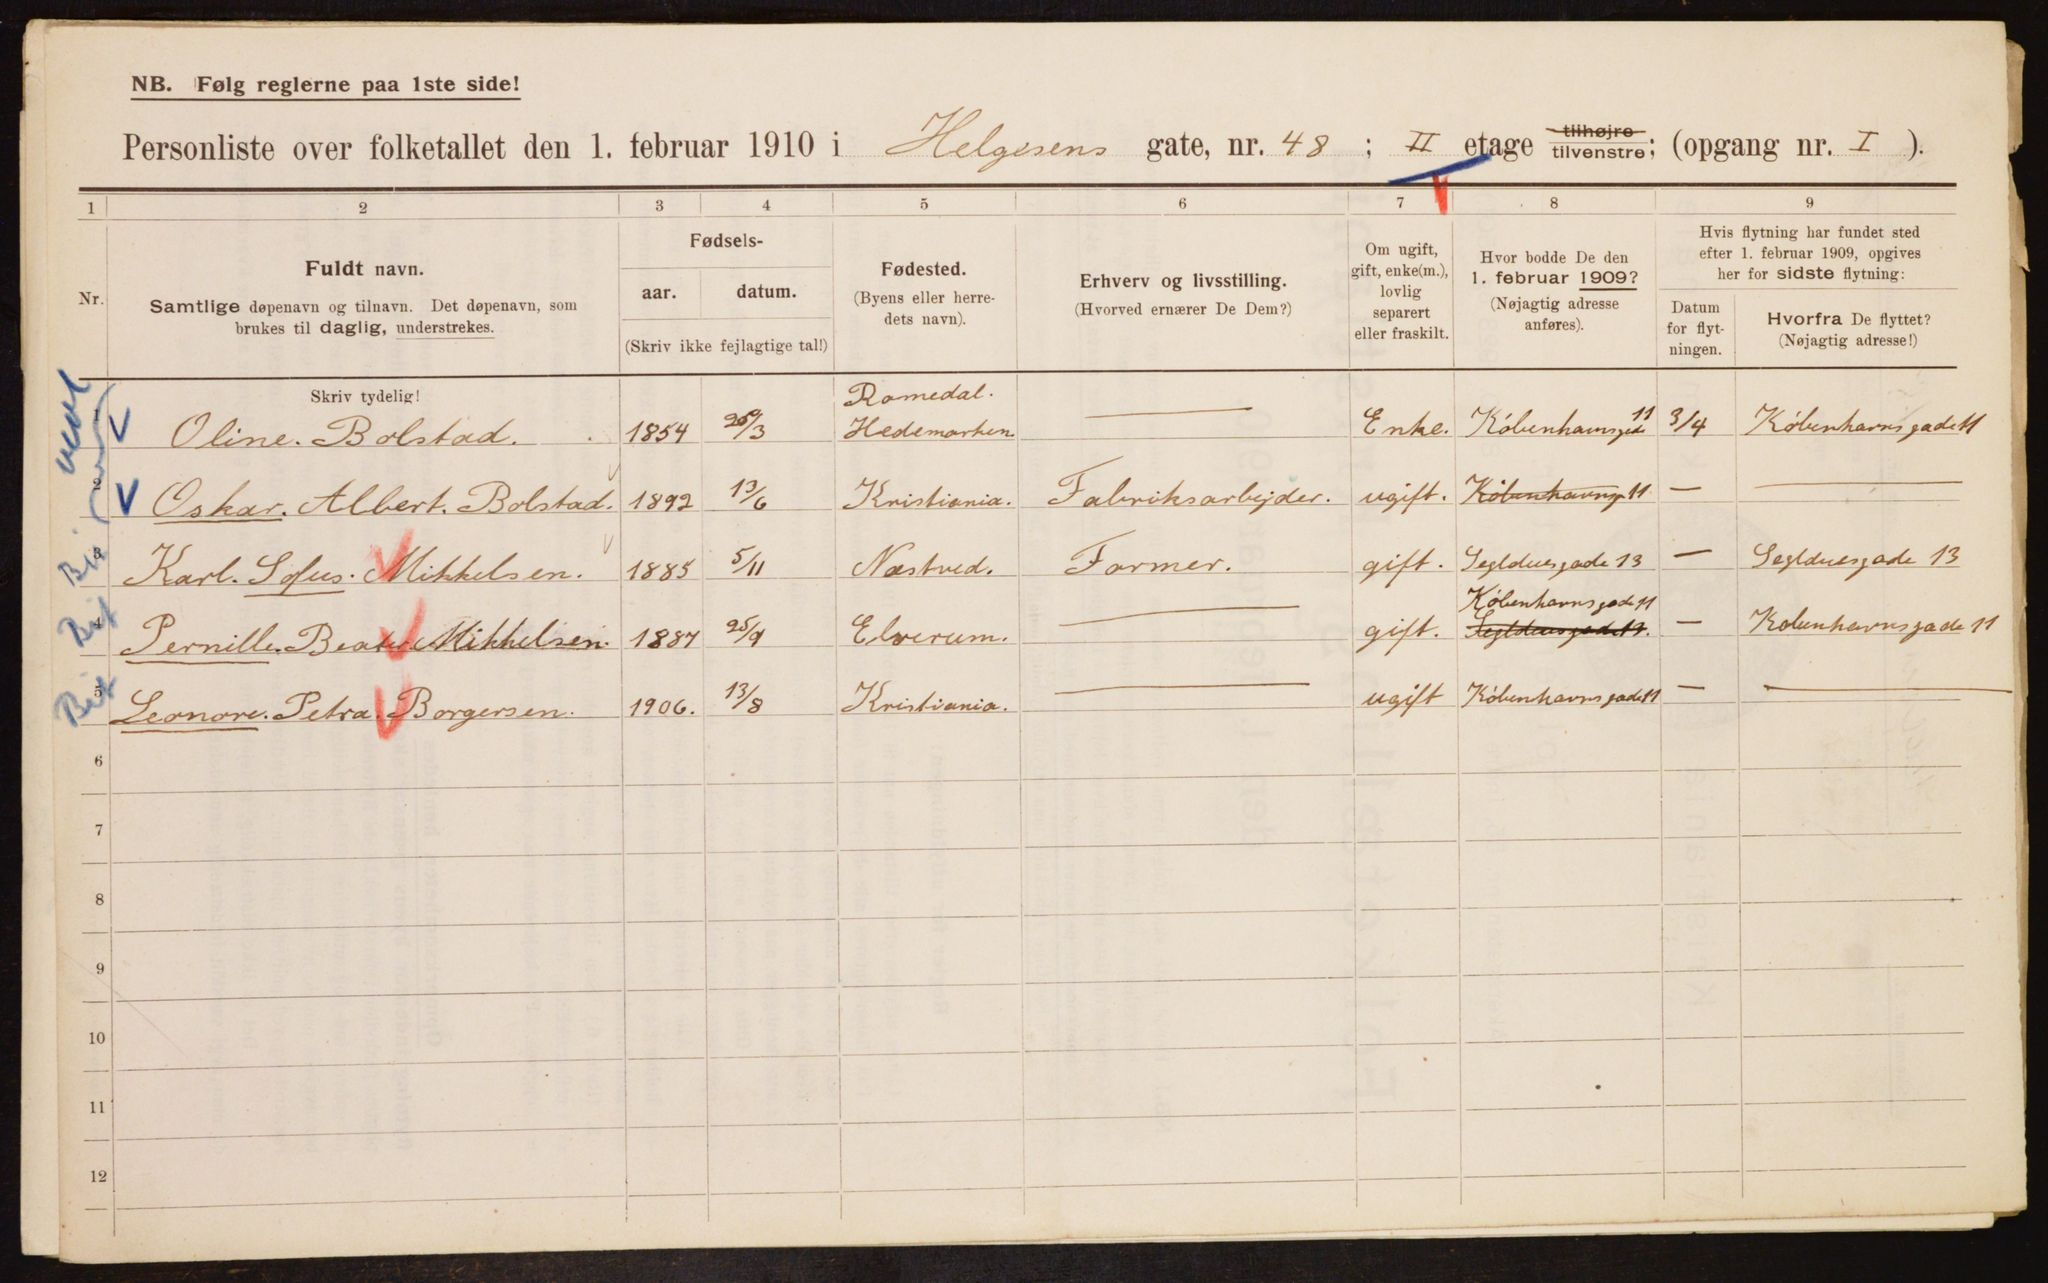 NB. Følg reglerne paa 1ste side!
Personliste over folketallet den 1. februar 1910 i Helgesens gate, nr. 48; II etage tilhøjre tilvenstre; (opgang nr. I).
1 2 3 4 5 6 7 8 9
Nr.
Fuldt navn.
Samtlige døpenavn og tilnavn. Det døpenavn, som
brukes til daglig, understrekes.
Fødsels-
aar. datum.
(Skriv ikke fejlagtige tal!)
Fødested.
(Byens eller herre-
dets navn).
Erhverv og livsstilling.
(Hvorved ernærer De Dem?)
Om ugift,
gift, enke(m.),
lovlig
separert
eller fraskilt.
Hvor bodde De den
1. februar 1909?
(Nøjagtig adresse
anføres).
Hvis flytning har fundet sted
efter 1. februar 1909, opgives
her for sidste flytning:
Datum
for flyt-
ningen.
Hvorfra De flyttet?
(Nøjagtig adresse!)
Skriv tydelig!
1 Oline. Bolstad. 1854 /3 Romedal. Hedemarken. — Enke. Københavnsgade 11 3/4 Københavnsgade 11
2 Oskar. Albert. Bolstad. 1892 13/6 Kristiania. Fabriksarbejder. ugift. Københavnsg. 11 — —
3 Karl. Sofus. Mikkelsen. 1885 5/11 Næstved. Former. gift. 13 — 13
4 Pernille. Mikkelsen. 1887 25/9 Elverum. — gift. Københavnsgade 11 — Københavnsgade 11
5 Leonore. Petra. Borgersen. 1906. 13/8 Kristiania. — ugift Københavnsgade 11 — —
6
7
8
9
10
11
12